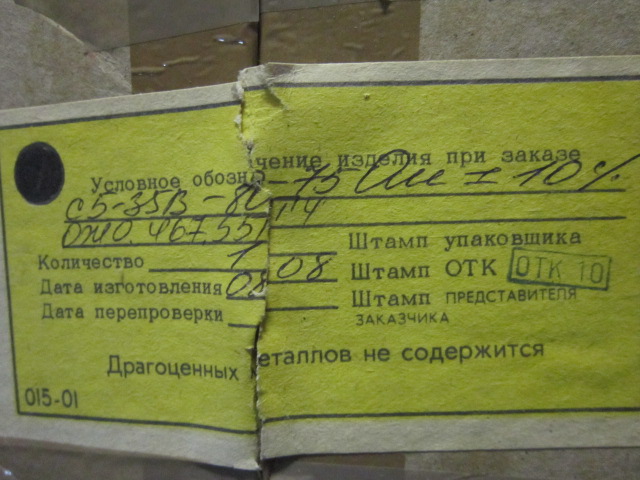 Условное обозначение изделия при заказе
С5-35В - 80 - 75 Ом ± 10%
ОЖО.467.551 ТУ
Количество 1 Штамп упаковщика
Дата изготовления 08 08 Штамп ОТК ОТК 10
Дата перепроверки Штамп ПРЕДСТАВИТЕЛЯ
ЗАКАЗЧИКА
Драгоценных металлов не содержится
015-01